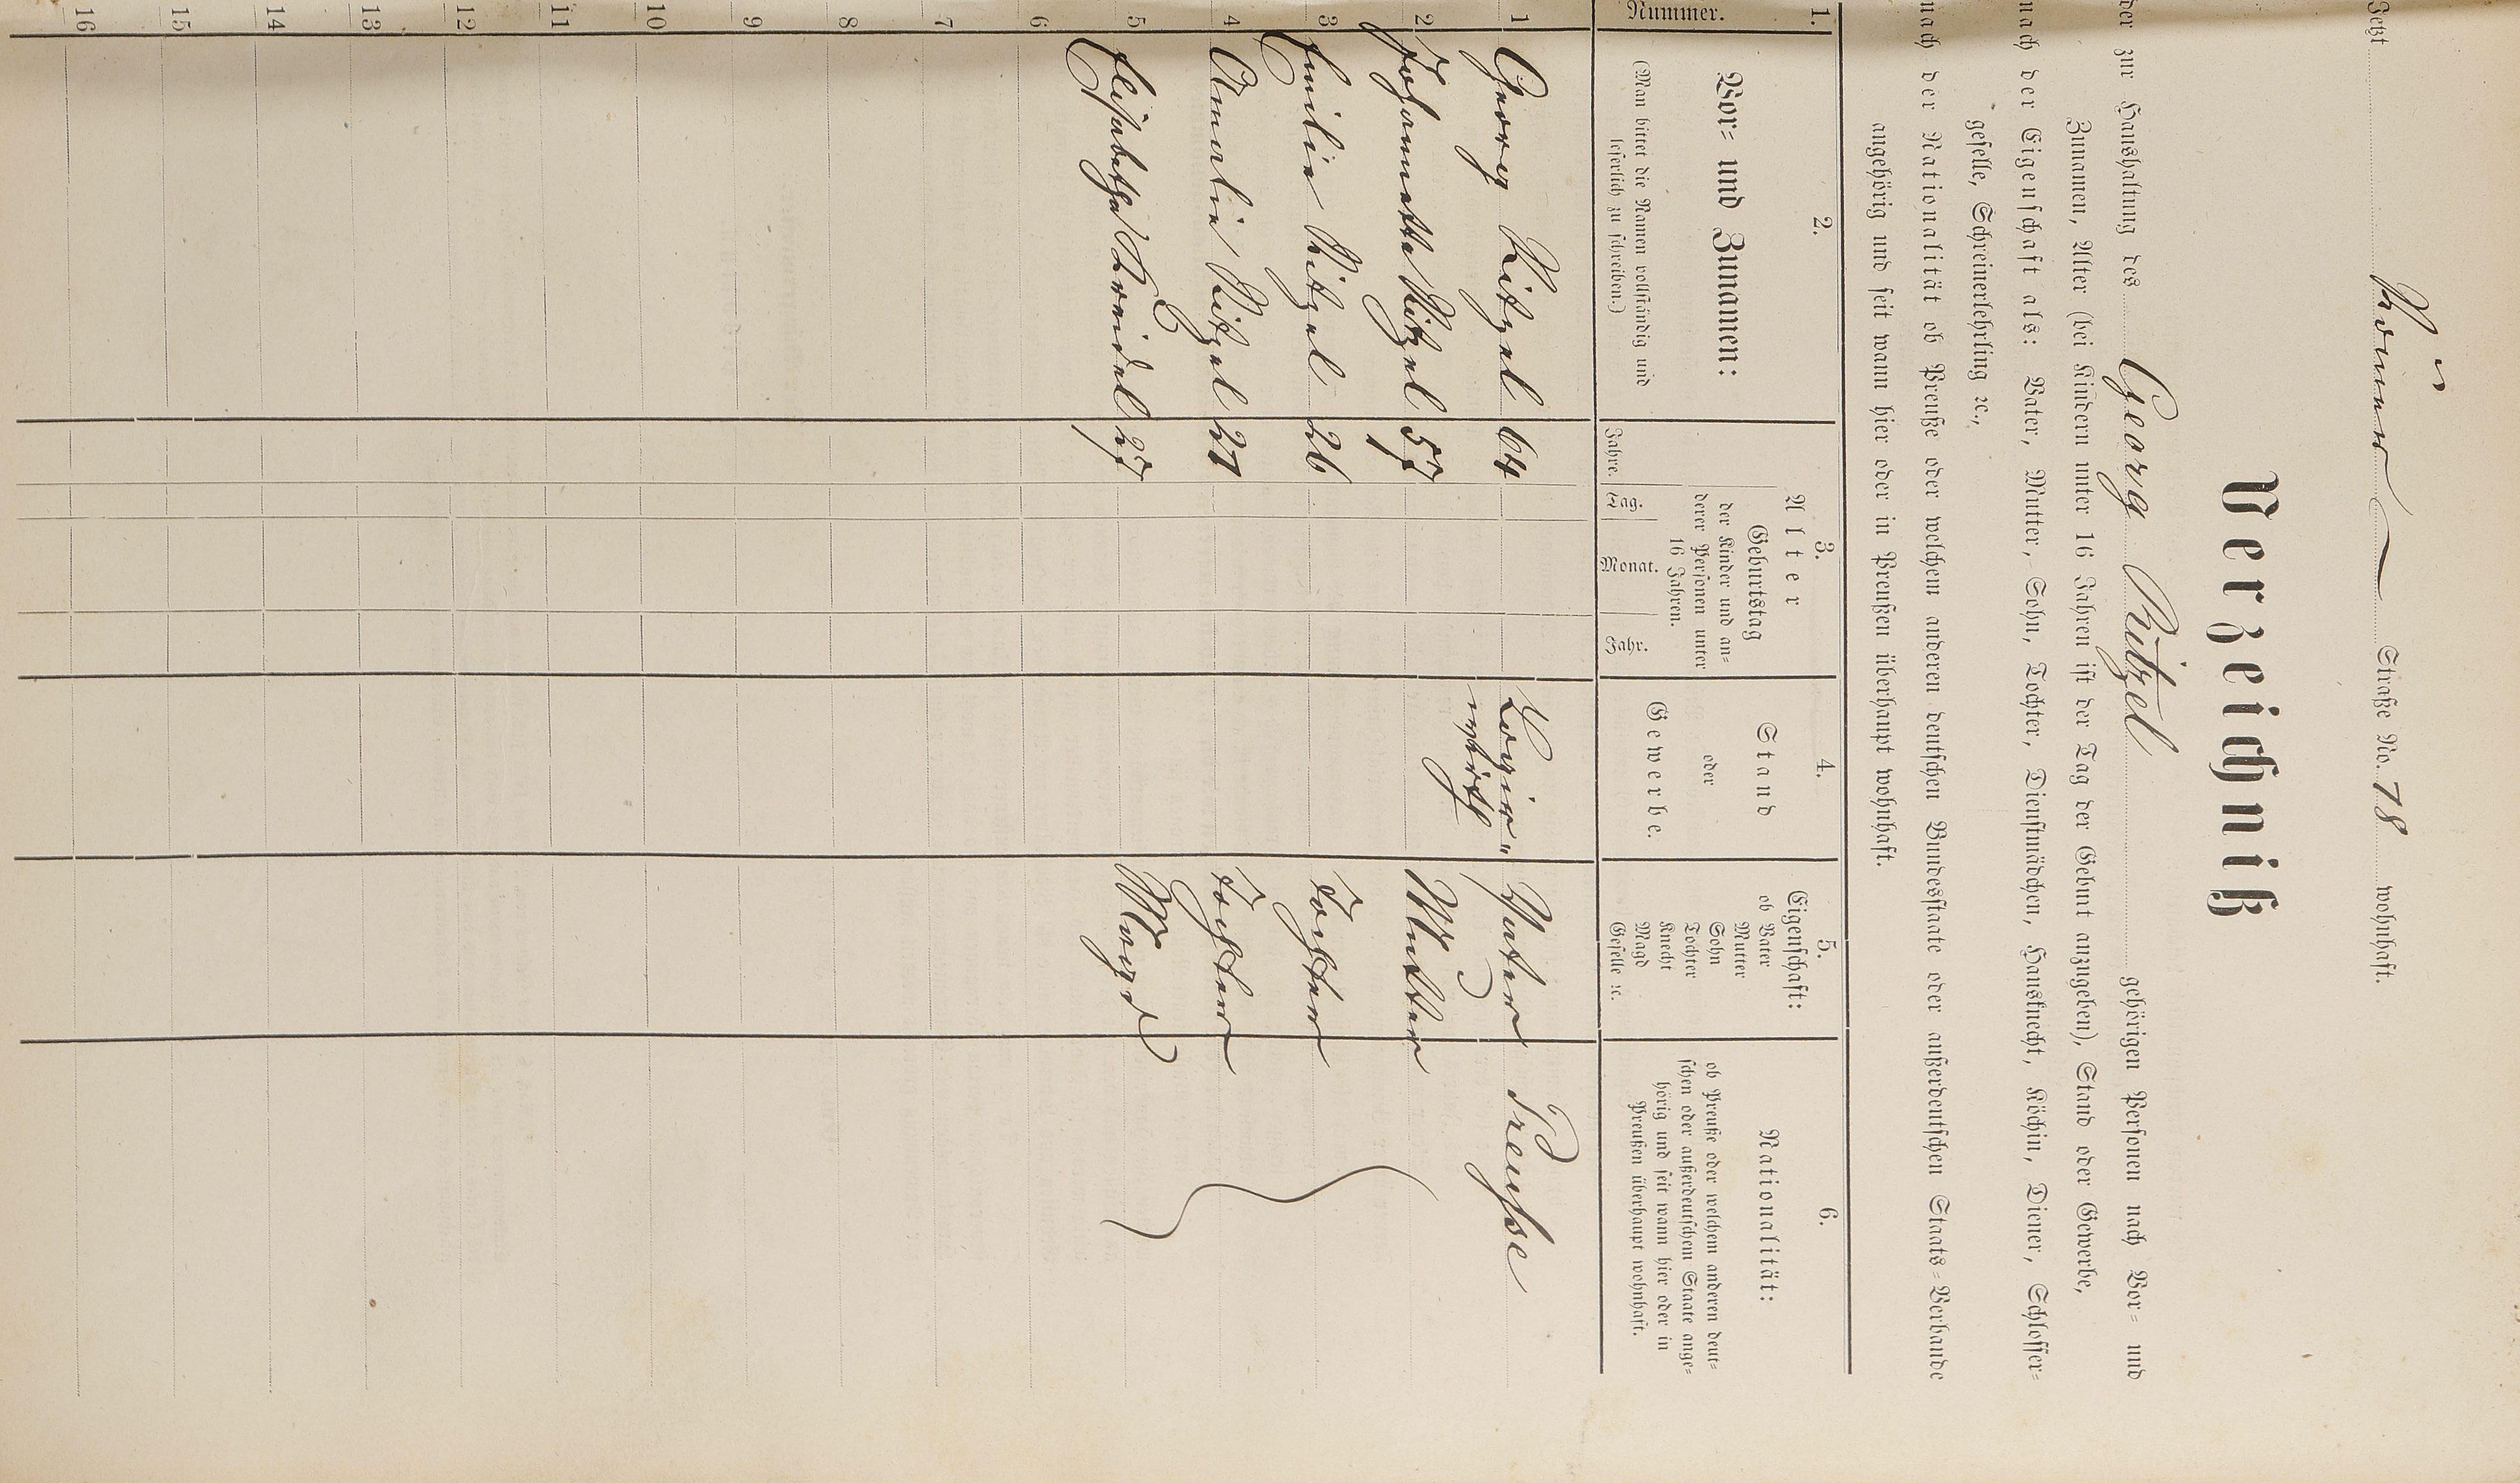 Jetzt Römer Straße No. 78 wohnhaft.
Verzeichniß
der zur Haushaltung des Georg Ritzel gehörigen Personen nach Vor- und
Zunamen, Alter (bei Kindern unter 16 Jahren ist der Tag der Geburt anzugeben), Stand oder Gewerbe,
nach der Eigenschaft als: Vater, Mutter, Sohn, Tochter, Dienstmädchen, Hausknecht, Köchin, Diener, Schlosser-
geselle, Schreinerlehrling ꝛc.,
nach der Nationalität ob Preuße oder welchem anderen deutschen Bundesstaate oder außerdeutschen Staats-Verbande
angehörig und seit wann hier oder in Preußen überhaupt wohnhaft.
1. 2. 3. 4. 5. 6.
Nummer.
Vor- und Zunamen:
(Man bittet die Namen vollständig und
leserlich zu schreiben.)
Alter
Geburtstag
der Kinder und an-
derer Personen unter
16 Jahren.
Jahre. Tag. Monat. Jahr.
Stand
oder
Gewerbe.
Eigenschaft:
ob Vater
Mutter
Sohn
Tochter
Knecht
Magd
Geselle ꝛc.
Nationalität:
ob Preuße oder welchem anderen deut-
schen oder außerdeutschem Staate ange-
hörig und seit wann hier oder in
Preußen überhaupt wohnhaft.
1 Georg Ritzel 64 Logier- Vater Preusse
wirth
2 Johannette Ritzel 57 Mutter
3 Emilie Ritzel 26 Tochter
4 Amalie Ritzel 21 Tochter
5 Elisabetha 27 Magd
6
7
8
9
10
11
12
13
14
15
16